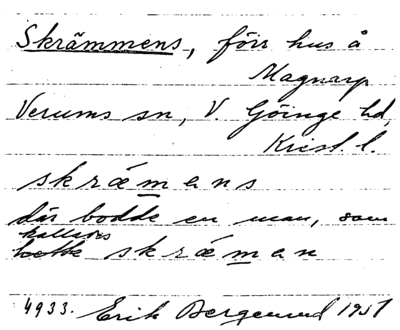 Skrämmens, förr hus å
Magnarp
Verums sn, V. Göinge hd,
Krist. l.
skræmens
där bodde en man, som
kallades
hette skræmen
4933. Erik Bergenlund 1951